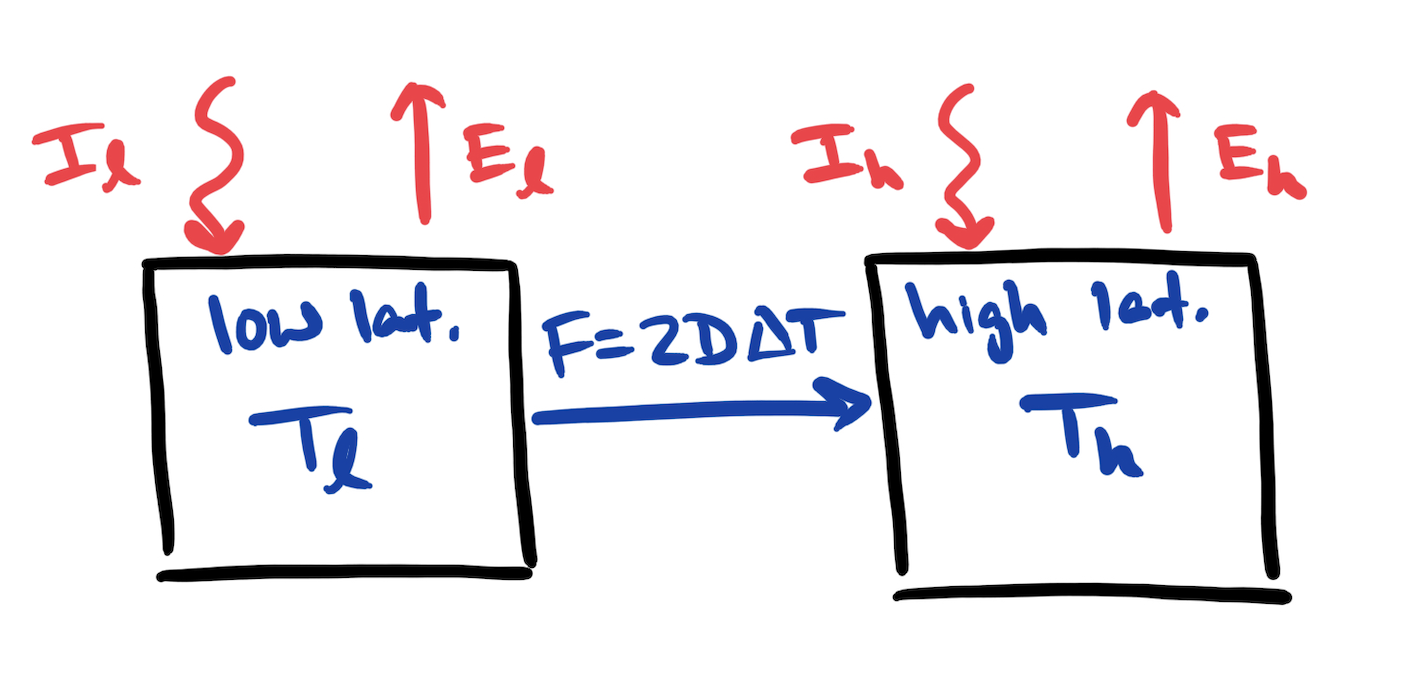 I_l E_l I_h E_h
low lat. F=2DΔT high lat.
T_l T_h